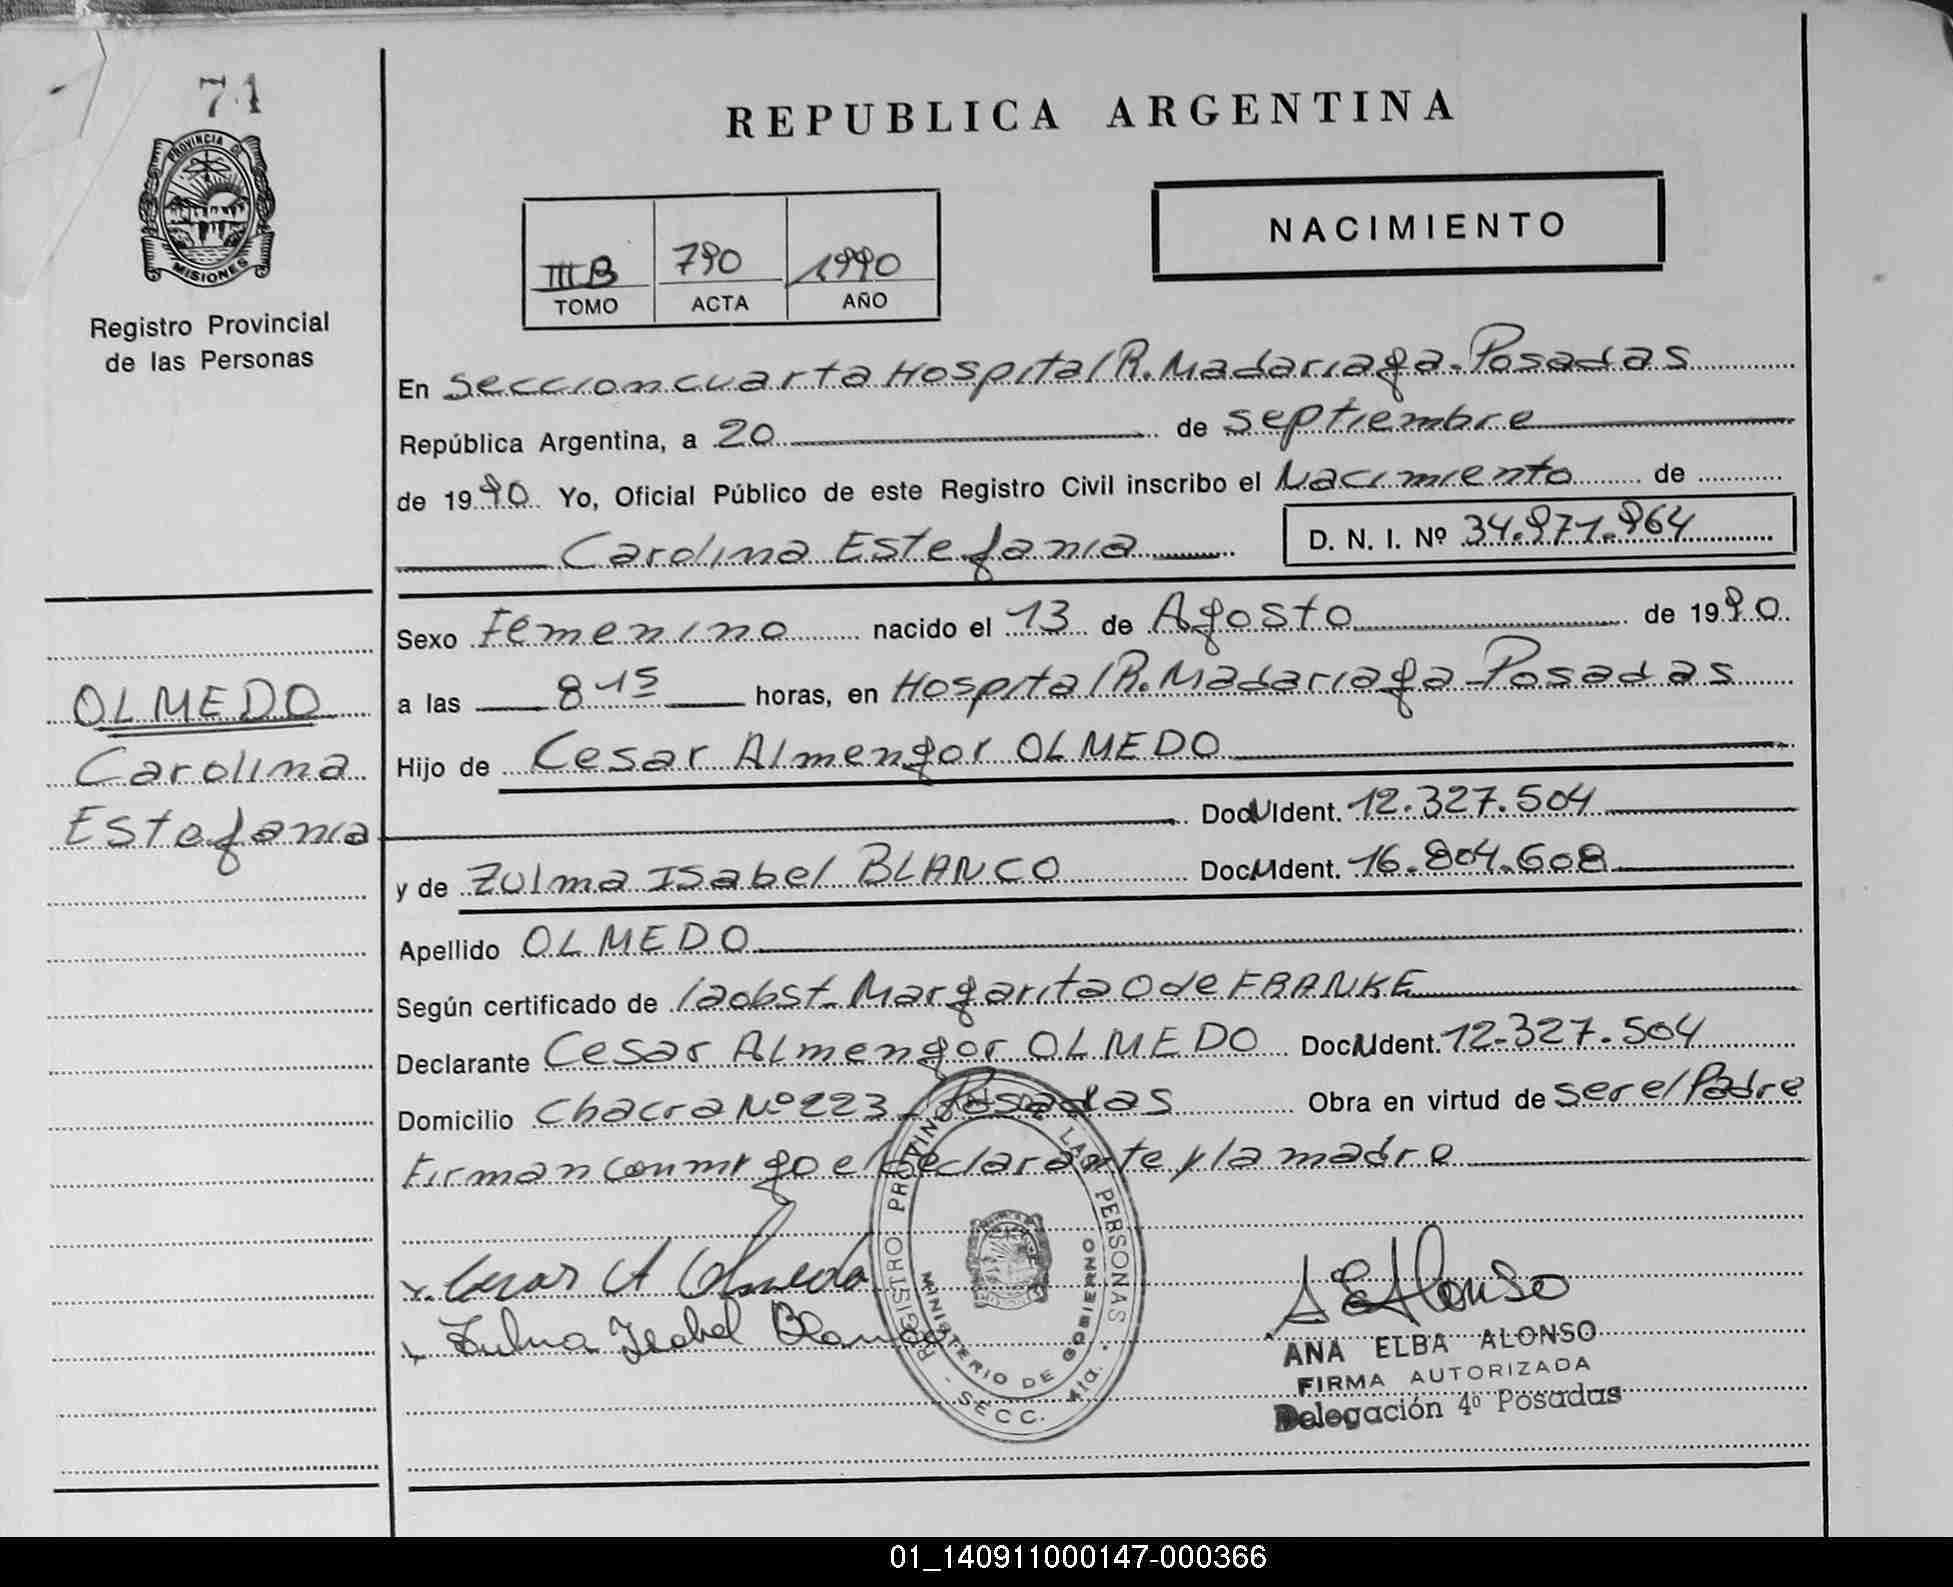 71
PROVINCIA DE
MISIONES
Registro Provincial
de las Personas
REPUBLICA ARGENTINA
NACIMIENTO
III B 790 1990
TOMO ACTA AÑO
En Seccion cuarta Hospital R. Madariaga - Posadas
República Argentina, a 20 de septiembre
de 1990 Yo, Oficial Público de este Registro Civil inscribo el Nacimiento de
Carolina Estefania D. N. I. Nº 34.971.964
Sexo Femenino nacido el 13 de Agosto de 1990
a las 8 15 horas, en Hospital R. Madariaga - Posadas
Hijo de Cesar Almengor OLMEDO
Doc Ident. 12.327.504
y de Zulma Isabel BLANCO Doc Ident. 16.804.608
Apellido OLMEDO
Según certificado de la obst. Margarita O de FRANKE
Declarante Cesar Almengor OLMEDO Doc Ident. 12.327.504
Domicilio Chacra Nº 223 - Posadas Obra en virtud de ser el Padre
Firman conmigo el declarante y la madre
OLMEDO
Carolina
Estefania
Cesar A Olmedo
Zulma Isabel Blanco
REGISTRO PROVINCIAL DE LAS PERSONAS
MINISTERIO DE GOBIERNO
- SECC. 4ta. -
A E Alonso
ANA ELBA ALONSO
FIRMA AUTORIZADA
Delegación 4º Posadas
01_140911000147-000366